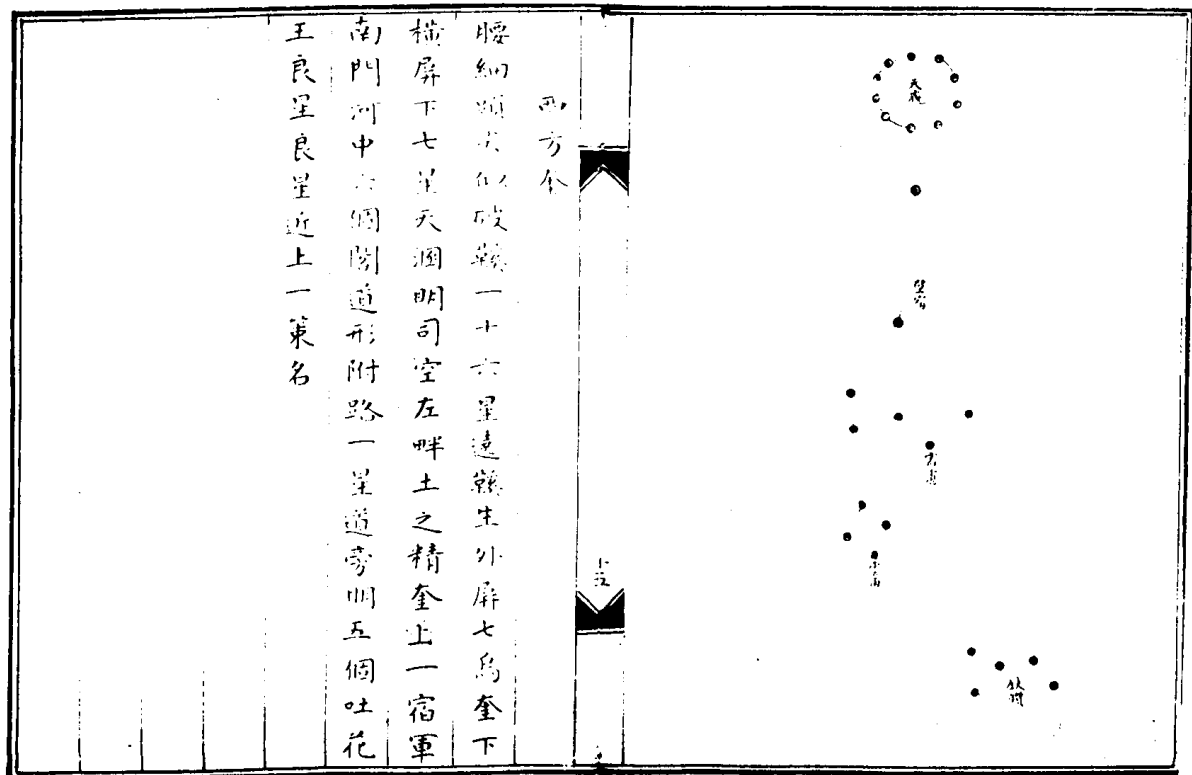 天廐
壁宿
西方奎
腰細頭尖似破鞵一十六星遶鞵生外屏七烏奎下
橫屏下七星天溷明司空左畔土之精奎上一宿軍
南門河中六個閣道形附路一星道旁明五個吐花
王良星良星近上一策名